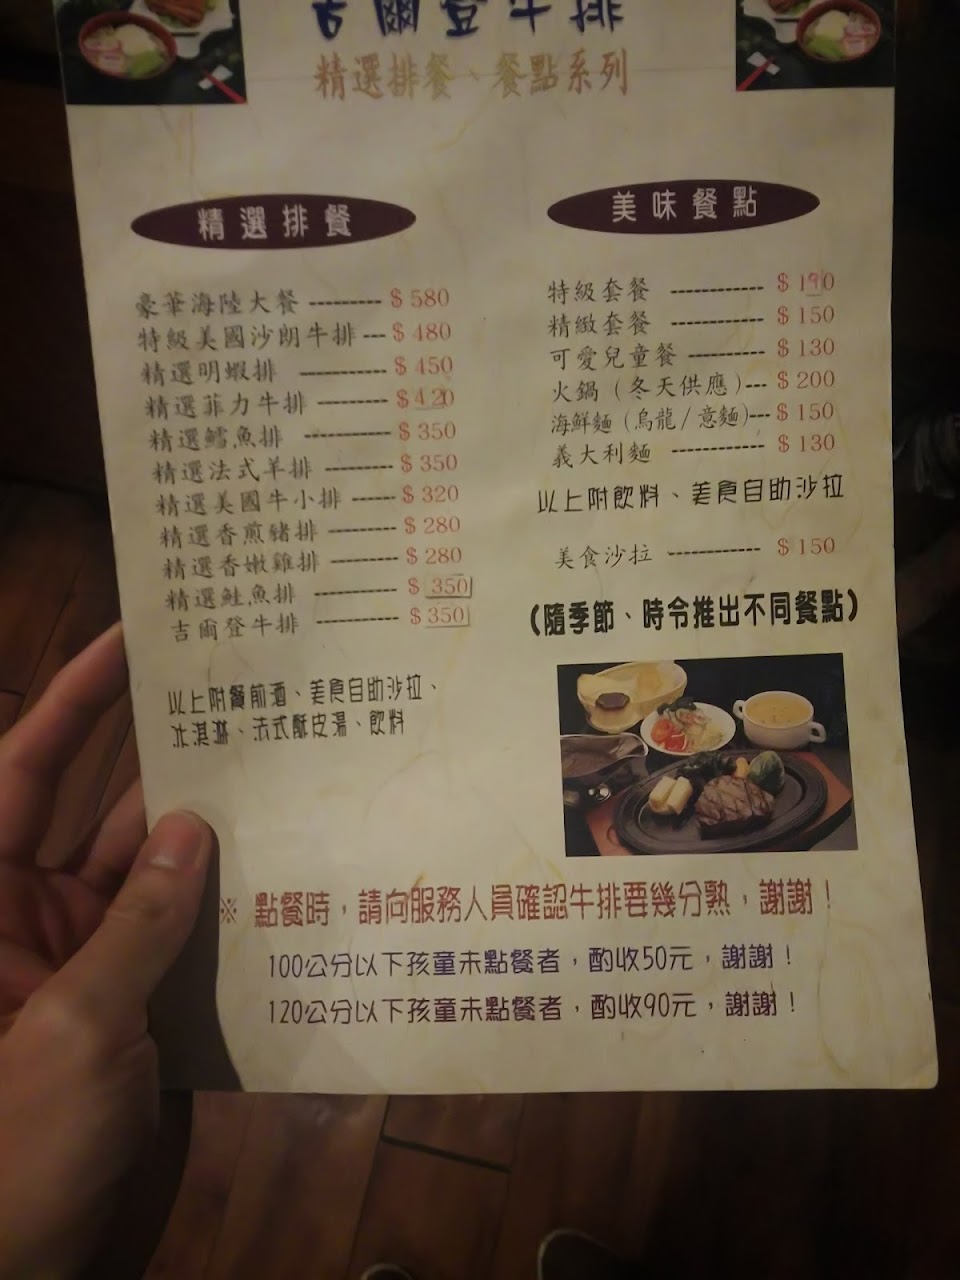 吉爾登牛排
精選排餐、餐點系列
精選排餐
豪華海陸大餐 --------- $ 580
特級美國沙朗牛排 --- $ 480
精選明蝦排 ----------- $ 450
精選菲力牛排 --------- $ 420
精選鱈魚排 ----------- $ 350
精選法式羊排 --------- $ 350
精選美國牛小排 ------ $ 320
精選香煎豬排 --------- $ 280
精選香嫩雞排 --------- $ 280
精選鮭魚排 ----------- $ 350
吉爾登牛排 ----------- $ 350
以上附餐前酒、美食自助沙拉、
冰淇淋、法式酥皮湯、飲料
美味餐點
特級套餐 ------------ $ 190
精緻套餐 ------------ $ 150
可愛兒童餐 ---------- $ 130
火鍋（冬天供應）--- $ 200
海鮮麵（烏龍/意麵）--- $ 150
義大利麵 ------------ $ 130
以上附飲料、美食自助沙拉
美食沙拉 ------------ $ 150
（隨季節、時令推出不同餐點）
※ 點餐時，請向服務人員確認牛排要幾分熟，謝謝！
100公分以下孩童未點餐者，酌收50元，謝謝！
120公分以下孩童未點餐者，酌收90元，謝謝！